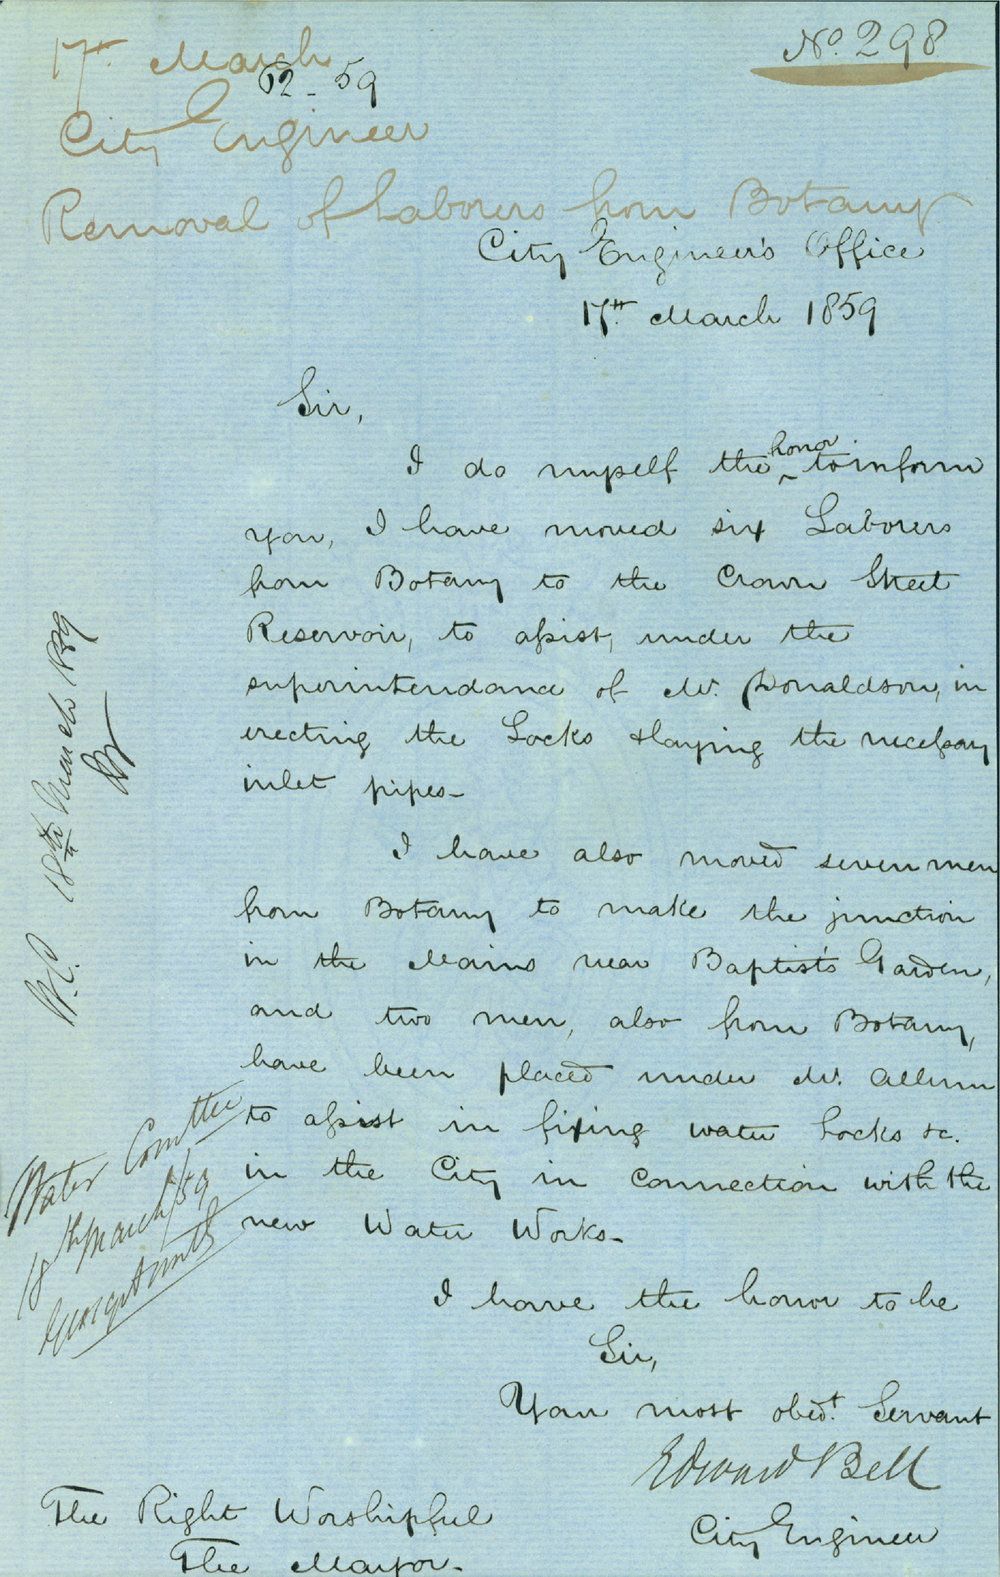 17th March
62-59
No. 298
City Engineer
Removal of Laborers from Botany
City Engineer's Office
17th March 1859
Sir,
I do myself the honor to inform
you, I have moved six Laborers
from Botany to the Crown Street
Reservoir, to assist, under the
superintendance of Mr. Donaldson, in
erecting the Locks & laying the necessary
inlet pipes-
I have also moved seven men
from Botany to make the junction
in the Mains near Baptist's Garden,
and two men, also from Botany,
have been placed under Mr.
to assist in fixing water Locks &c.
in the City in connection with the
new Water Works-
I have the honor to be
Sir,
Your most obedt. Servant
Edward Bell
City Engineer
The Right Worshipful
The Mayor-
W.C. 18th March 1859
Water Comttee
18th March/59
George Smith